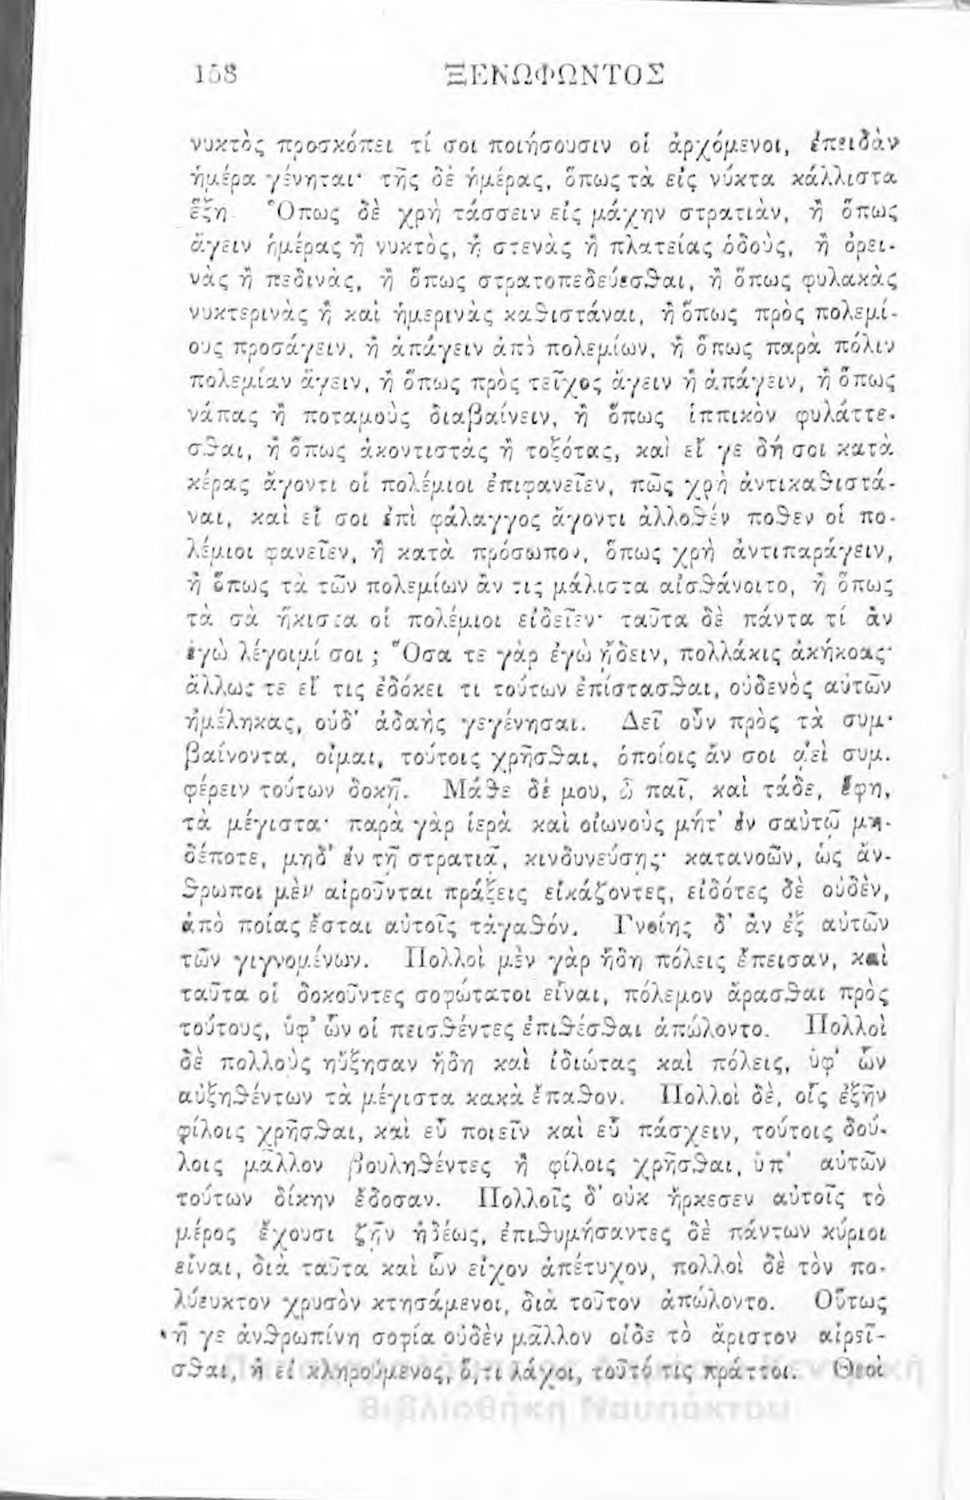 158 ΞΕΝΩΦΩΝΤΟΣ
νυκτὸς προσκόπει τί σοι ποιήσουσιν οἱ ἀρχόμενοι, ἐπειδὰν
ἡμέρα γένηται· τῆς δὲ ἡμέρας, ὅπως τὰ εἰς νύκτα κάλλιστα
ἕξη. Ὅπως δὲ χρὴ τάσσειν εἰς μάχην στρατιὰν, ἢ ὅπως
ἄγειν ἡμέρας ἢ νυκτὸς, ἢ στενὰς ἢ πλατείας ὁδοὺς, ἢ ὀρει-
νὰς ἢ πεδινὰς, ἢ ὅπως στρατοπεδεύεσθαι, ἢ ὅπως φυλακὰς
νυκτερινὰς ἢ καὶ ἡμερινὰς καθιστάναι, ἢ ὅπως πρὸς πολεμί-
ους προσάγειν, ἢ ἀπάγειν ἀπὸ πολεμίων, ἢ ὅπως παρὰ πόλιν
πολεμίαν ἄγειν, ἢ ὅπως πρὸς τεῖχος ἄγειν ἢ ἀπάγειν, ἢ ὅπως
νάπας ἢ ποταμοὺς διαβαίνειν, ἢ ὅπως ἱππικὸν φυλάττε-
σθαι, ἢ ὅπως ἀκοντιστὰς ἢ τοξότας, καὶ εἴ γε δή σοι κατὰ
κέρας ἄγοντι οἱ πολέμιοι ἐπιφανεῖεν, πῶς χρὴ ἀντικαθιστά-
ναι, καὶ εἴ σοι ἐπὶ φάλαγγος ἄγοντι ἄλλοθέν ποθεν οἱ πο-
λέμιοι φανεῖεν, ἢ κατὰ πρόσωπον, ὅπως χρὴ ἀντιπαράγειν,
ἢ ὅπως τὰ τῶν πολεμίων ἄν τις μάλιστα αἰσθάνοιτο, ἢ ὅπως
τὰ σὰ ἥκιστα οἱ πολέμιοι εἰδεῖεν· ταῦτα δὲ πάντα τί ἂν
ἐγὼ λέγοιμί σοι ; Ὅσα τε γὰρ ἐγὼ ᾔδειν, πολλάκις ἀκήκοας·
ἄλλως τε εἴ τις ἐδόκει τι τούτων ἐπίστασθαι, οὐδενὸς αὐτῶν
ἠμέληκας, οὐδ' ἀδαὴς γεγένησαι. Δεῖ οὖν πρὸς τὰ συμ-
βαίνοντα, οἶμαι, τούτοις χρῆσθαι, ὁποίοις ἄν σοι ἀεὶ συμ-
φέρειν τούτων δοκῇ. Μάθε δέ μου, ὦ παῖ, καὶ τάδε, ἔφη,
τὰ μέγιστα· παρὰ γὰρ ἱερὰ καὶ οἰωνοὺς μήτ' ἐν σαυτῷ μη-
δέποτε, μηδ' ἐν τῇ στρατιᾷ, κινδυνεύσῃς· κατανοῶν, ὡς ἄν-
θρωποι μὲν αἱροῦνται πράξεις εἰκάζοντες, εἰδότες δὲ οὐδὲν,
ἀπὸ ποίας ἔσται αὐτοῖς τἀγαθόν. Γνοίης δ' ἂν ἐξ αὐτῶν
τῶν γιγνομένων. Πολλοὶ μὲν γὰρ ἤδη πόλεις ἔπεισαν, καὶ
ταῦτα οἱ δοκοῦντες σοφώτατοι εἶναι, πόλεμον ἄρασθαι πρὸς
τούτους, ὑφ' ὧν οἱ πεισθέντες ἐπιθέσθαι ἀπώλοντο. Πολλοὶ
δὲ πολλοὺς ηὔξησαν ἤδη καὶ ἰδιώτας καὶ πόλεις, ὑφ' ὧν
αὐξηθέντων τὰ μέγιστα κακὰ ἔπαθον. Πολλοὶ δὲ, οἷς ἐξῆν
φίλοις χρῆσθαι, καὶ εὖ ποιεῖν καὶ εὖ πάσχειν, τούτοις δού-
λοις μᾶλλον βουληθέντες ἢ φίλοις χρῆσθαι, ὑπ' αὐτῶν
τούτων δίκην ἔδοσαν. Πολλοῖς δ' οὐκ ἤρκεσεν αὐτοῖς τὸ
μέρος ἔχουσι ζῆν ἡδέως, ἐπιθυμήσαντες δὲ πάντων κύριοι
εἶναι, διὰ ταῦτα καὶ ὧν εἶχον ἀπέτυχον, πολλοὶ δὲ τὸν πο-
λύευκτον χρυσὸν κτησάμενοι, διὰ τοῦτον ἀπώλοντο. Οὕτως
ἥ γε ἀνθρωπίνη σοφία οὐδὲν μᾶλλον οἶδε τὸ ἄριστον αἱρεῖ-
σθαι, ἢ εἰ κληρούμενος, ὅ,τι λάχοι, τοῦτό τις πράττοι. Θεοὶ
Βιβλιοθήκη Ναυπάκτου